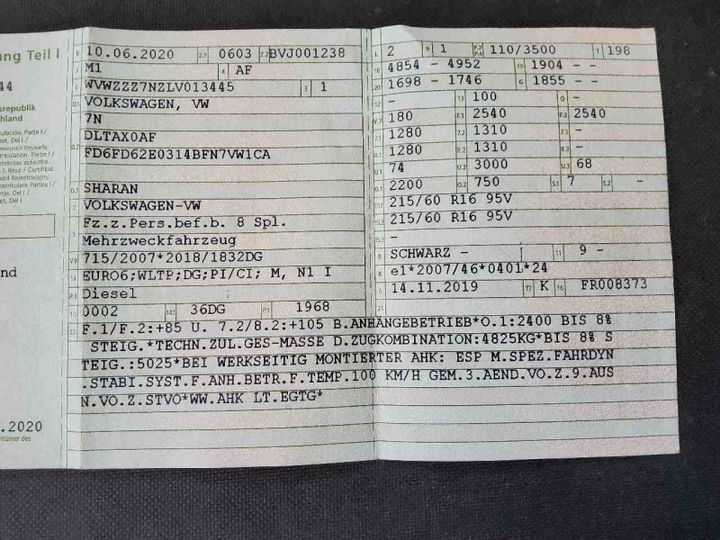 ung Teil I
44
srepublik
hland
B 10.06.2020 2.1 0603 2.2 BVJ001238
J M1 4 AF
E WVWZZZ7NZLV013445 3 1
D.1 VOLKSWAGEN, VW
D.2 7N
DLTAX0AF
FD6FD62E0314BFN7VW1CA
D.3 SHARAN
2 VOLKSWAGEN-VW
5 Fz.z.Pers.bef.b. 8 Spl.
Mehrzweckfahrzeug
V.9 715/2007*2018/1832DG
14 EURO6;WLTP;DG;PI/CI; M, N1 I
P.3 Diesel
10 0002 14.1 36DG P.1 1968
L 2 9 1 P.2 P.4 110/3500 T 198
18 4854 - 4952 19 1904 - -
20 1698 - 1746 G 1855 - -
- 13 100 Q -
180 F.1 2540 F.2 2540
1280 7.2 1310 -
1280 8.2 1310 -
74 U.2 3000 U.3 68
O.1 2200 O.2 750 S.1 7 S.2 -
215/60 R16 95V
215/60 R16 95V
-
R SCHWARZ - 11 9 -
K e1*2007/46*0401*24
6 14.11.2019 17 K 16 FR008373
21
22 F.1/F.2:+85 U. 7.2/8.2:+105 B.ANHÄNGEBETRIEB*O.1:2400 BIS 8%
STEIG.*TECHN.ZUL.GES-MASSE D.ZUGKOMBINATION:4825KG*BIS 8% S
TEIG.:5025*BEI WERKSEITIG MONTIERTER AHK: ESP M.SPEZ.FAHRDYN
.STABI.SYST.F.ANH.BETR.F.TEMP.100 KM/H GEM.3.AEND.VO.Z.9.AUS
N.VO.Z.STVO*WW.AHK LT.EGTG*
nd
.2020